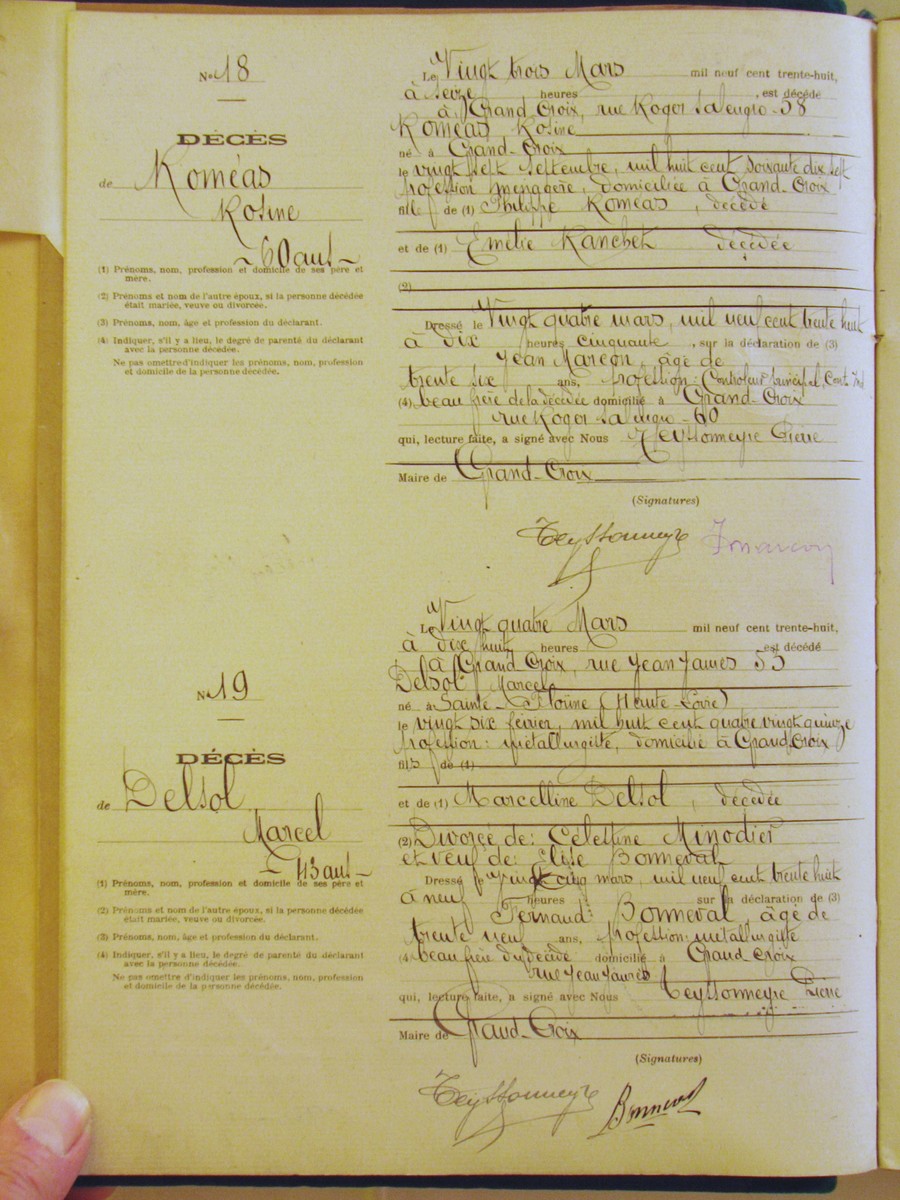 No 18
DÉCÈS
de Roméas
Rosine
60 ans
(1) Prénoms, nom, profession et domicile de ses père et
mère.
(2) Prénoms et nom de l'autre époux, si la personne décédée
était mariée, veuve ou divorcée.
(3) Prénoms, nom, âge et profession du déclarant.
(4) Indiquer, s'il y a lieu, le degré de parenté du déclarant
avec la personne décédée.
Ne pas omettre d'indiquer les prénoms, nom, profession
et domicile de la personne décédée.
Le Vingt trois Mars mil neuf cent trente-huit,
à seize heures , est décédé
à Grand Croix, rue Roger Salengro 58
Roméas Rosine
né à Grand-Croix
le vingt sept septembre, mil huit cent soixante dix sept
profession ménagère, domiciliée à Grand Croix
fille de (1) Philippe Roméas, décédé
et de (1) Emélie Ranchet décédée
(2)
Dressé le Vingt quatre mars, mil neuf cent trente huit
à dix heures cinquante , sur la déclaration de (3)
Jean Marcon, âgé de
trente six ans, profession: Controleur principal, Cont. Ind
(4) beau frère de la décédée domicilié à Grand-Croix
rue Roger Salengro 60
qui, lecture faite, a signé avec Nous Teyssonneyre Pierre
Maire de Grand-Croix
(Signatures)
Teyssonneyre Jmarcon
No 19
DÉCÈS
de Delsol
Marcel
43 ans
(1) Prénoms, nom, profession et domicile de ses père et
mère.
(2) Prénoms et nom de l'autre époux, si la personne décédée
était mariée, veuve ou divorcée.
(3) Prénoms, nom, âge et profession du déclarant.
(4) Indiquer, s'il y a lieu, le degré de parenté du déclarant
avec la personne décédée.
Ne pas omettre d'indiquer les prénoms, nom, profession
et domicile de la personne décédée.
Le Vingt quatre Mars mil neuf cent trente-huit,
à dix huit heures est décédé
à Grand Croix, rue Jean Jaures 55
Delsol Marcel
né à Sainte-Florine (Haute-Loire)
le vingt six février, mil huit cent quatre vingt quinze
profession: métallurgiste, domicilié à Grand Croix
fils de (1)
et de (1) Marcelline Delsol, décédée
(2) Divorcé de: Célestine Minodier
et veuf de: Elise Bonneval
Dressé le vingt cinq mars, mil neuf cent trente huit
à neuf heures sur la déclaration de (3)
Fernand Bonneval, âgé de
trente neuf ans, profession: métallurgiste
(4) beau frère du décédé domicilié à Grand Croix
rue Jean Jaures
qui, lecture faite, a signé avec Nous Teyssonneyre Pierre
Maire de Grand-Croix
(Signatures)
Teyssonneyre Bonneval